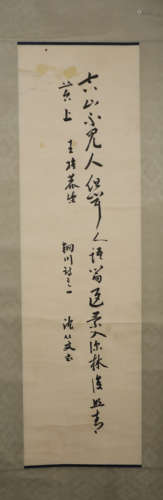 空山不見人但聞人語響返景入深林復照青
苔上 王維
輞川詩之一